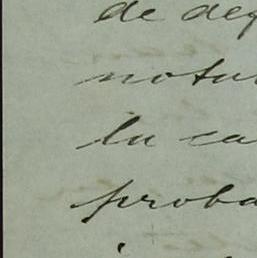 de deg
notu
la ca
proba